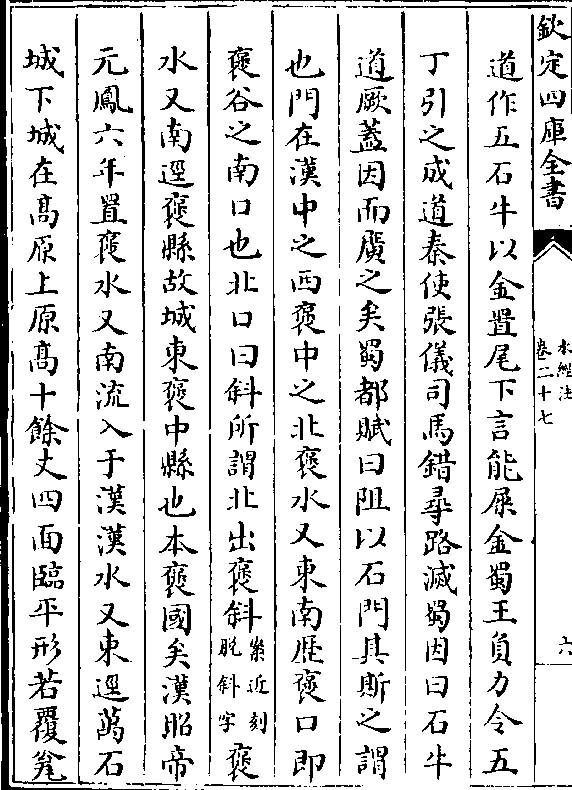 欽定四庫全書
水經注
卷二十七
六
道作五石牛以金置尾下言能屎金蜀王負力令五
丁引之成道秦使張儀司馬錯尋路滅蜀因曰石牛
道厥蓋因而廣之矣蜀都賦曰阻以石門其斯之謂
也門在漢中之西褒中之北褒水又東南歷褒口即
褒谷之南口也北口曰斜所謂北出褒斜案近刻脫斜字褒
水又南逕褒縣故城東褒中縣也本褒國矣漢昭帝
元鳳六年置褒水又南流入于漢漢水又東逕萬石
城下城在髙原上原髙十餘丈四面臨平形若覆瓮